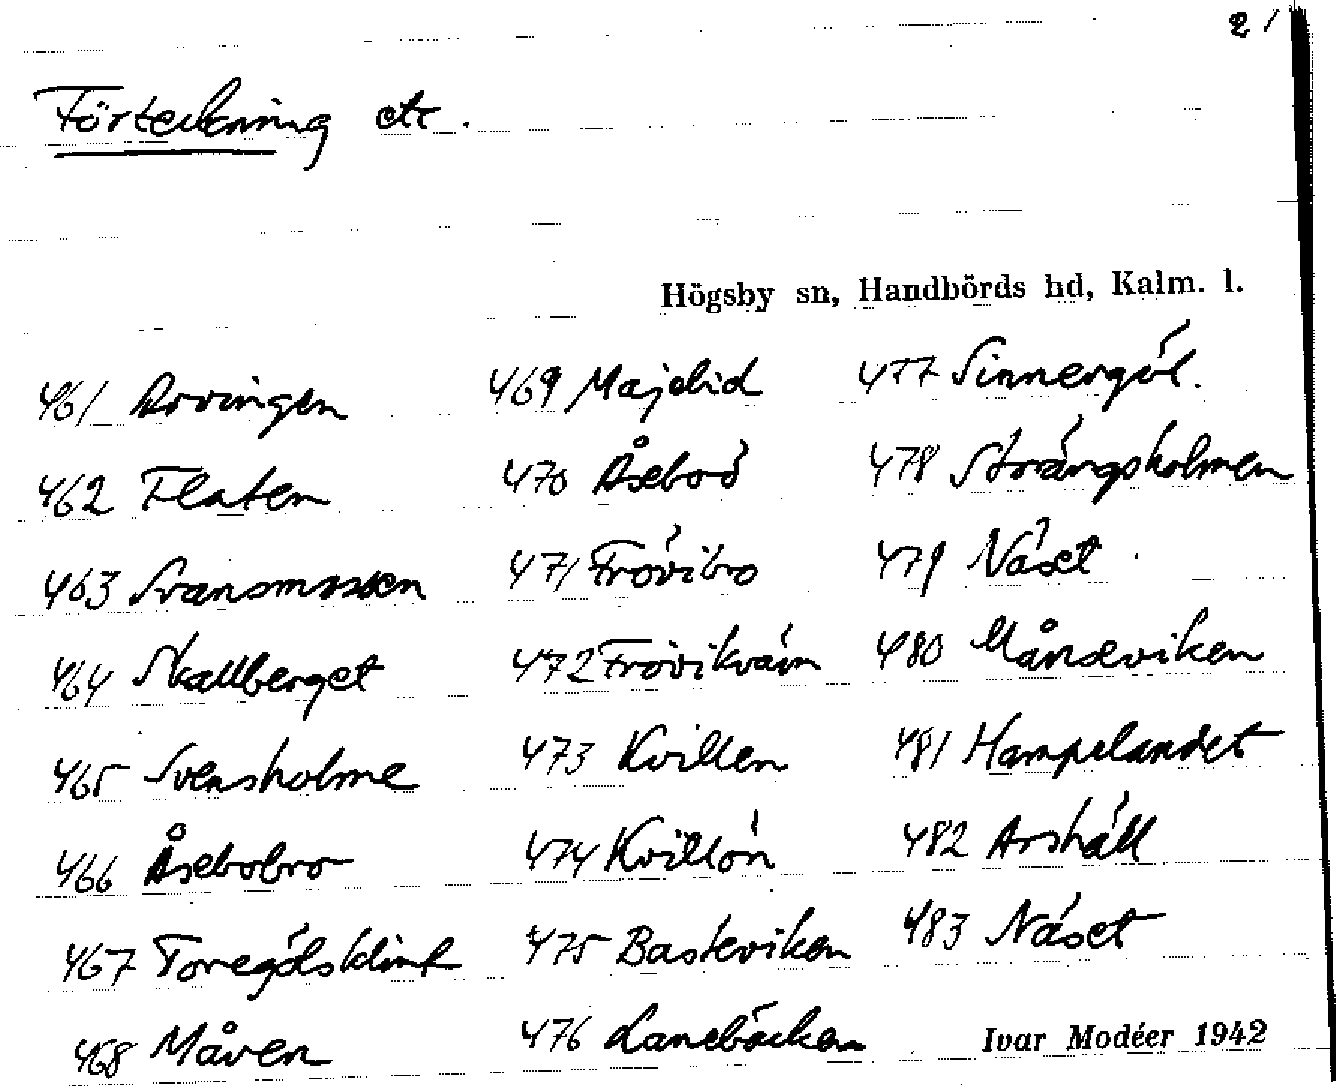 21
Förteckning etc.
Högsby sn, Handbörds hd, Kalm. l.
461 Arvingen
462 Flaten
463 Svansmossen
464 Skallberget
465 Svensholme
466 Åsebobro
467 Toregölsklint
468 Måven
469 Majebid
470 Åseboö
471 Frövibro
472 Frövikvarn
473 Kvillen
474 Kvillön
475 Basteviken
476 Lanebäcken
477 Sinnergöl.
478 Strängsholmen
479 Näset
480 Månseviken
481 Hampelandet
482 Arshäll
483 Näset
Ivar Modéer 1942